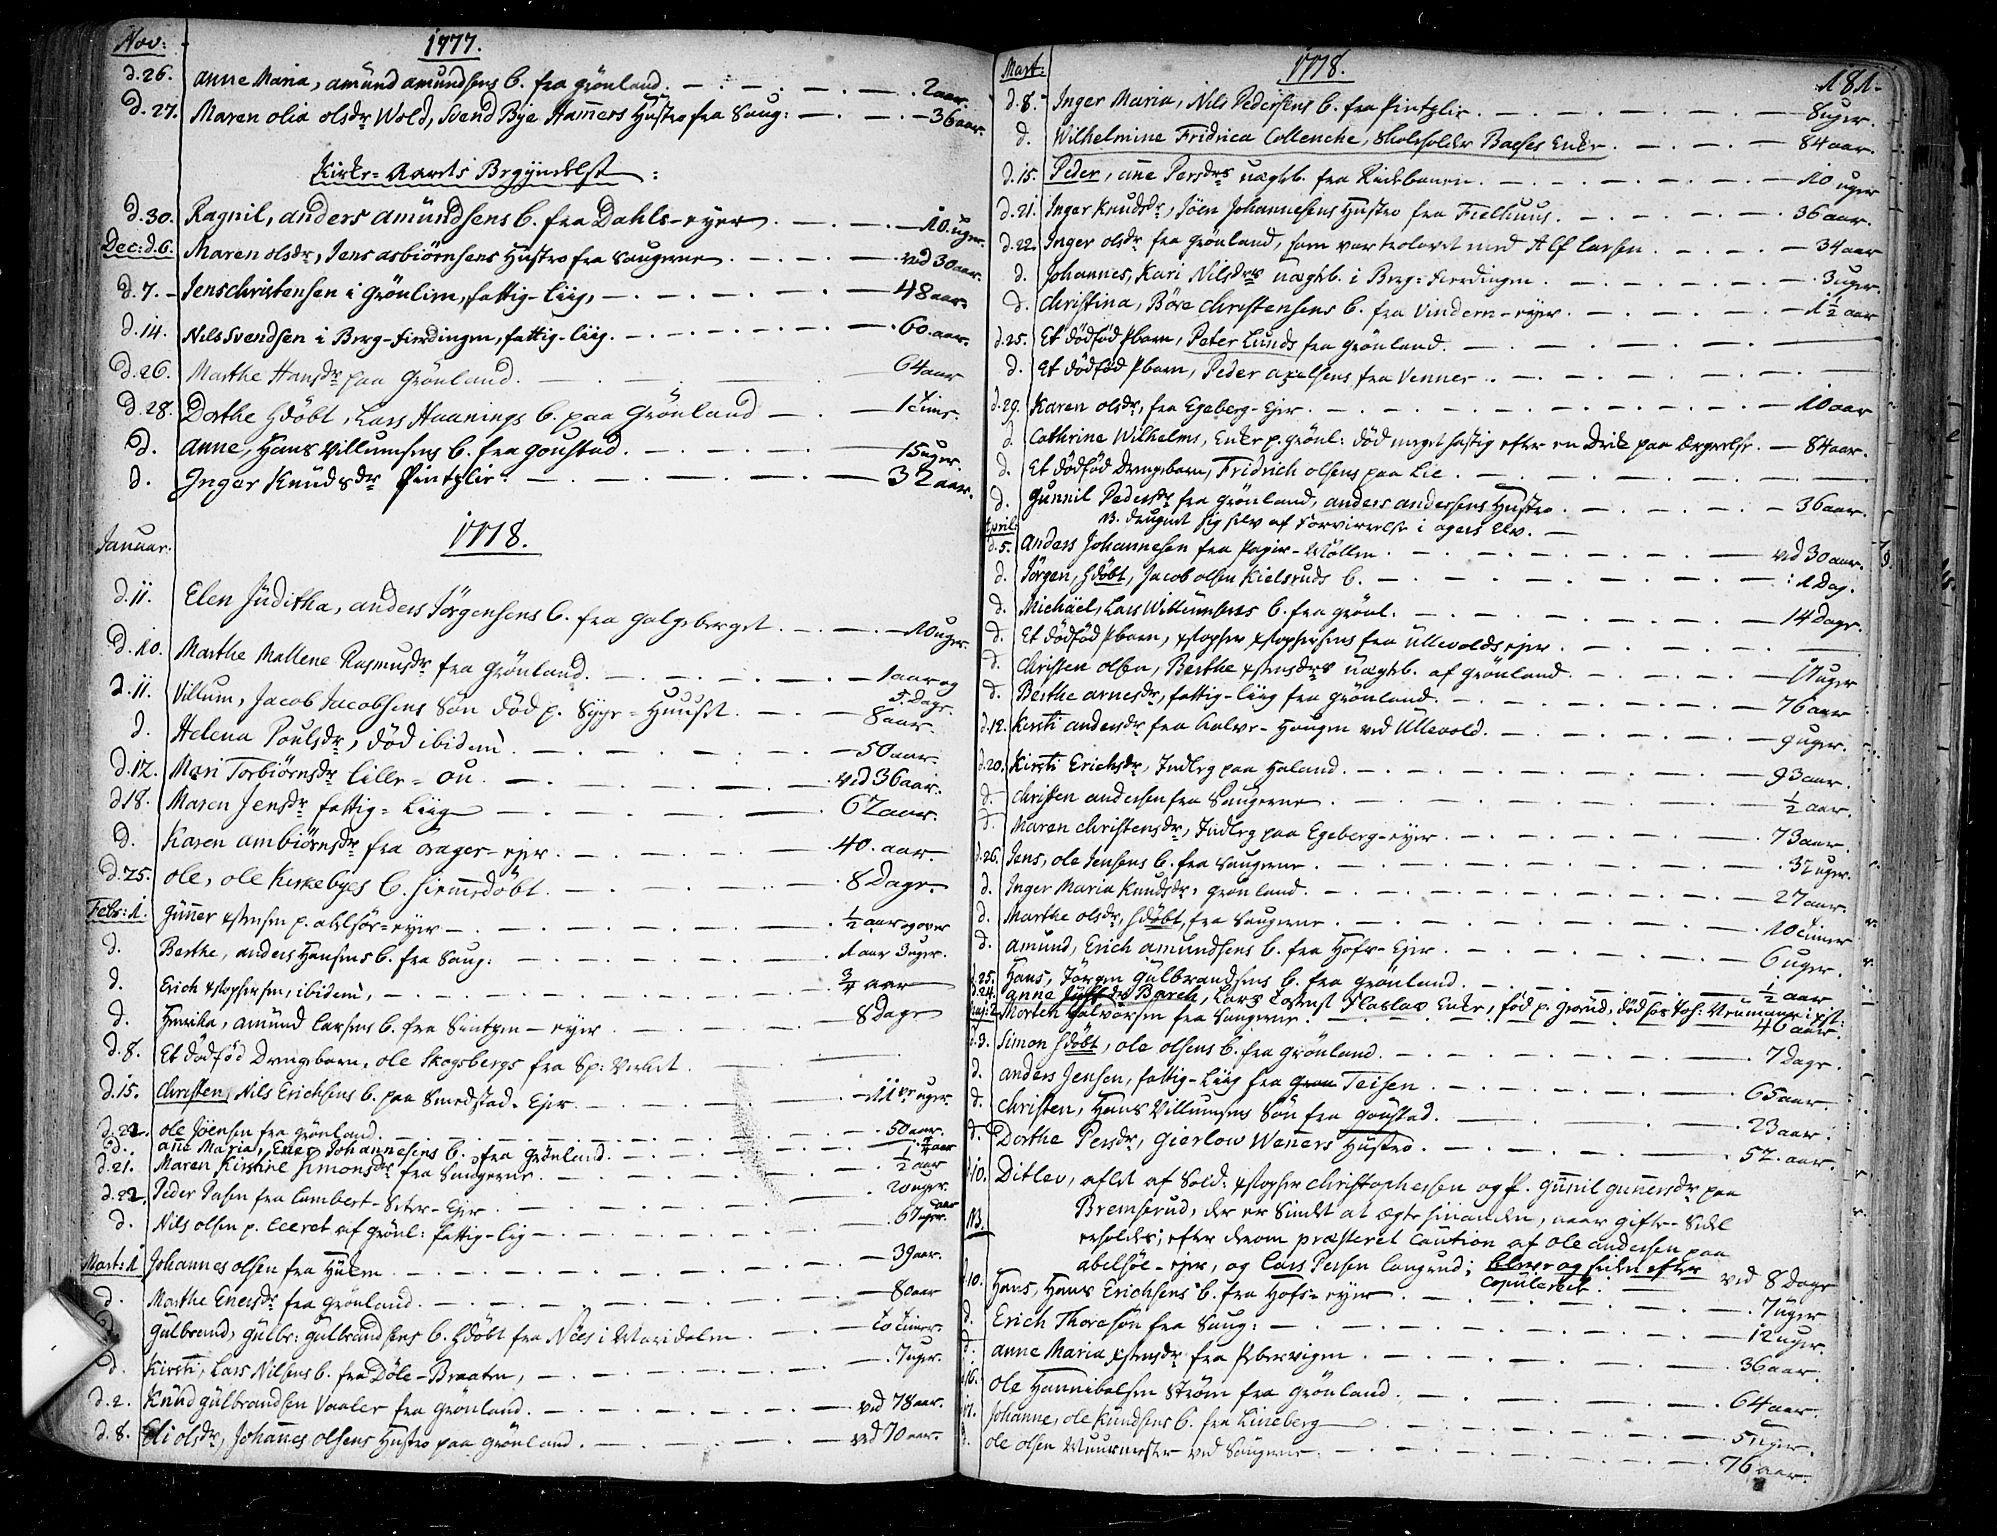 Nov: 1777.
d.26. Anne Maria, Amund Amundsens b. fra Grönland. 2 aar.
d.27. Maren Olia Olsdr Wold, Svend Bye Hamers Hustro fra Saug: 36 aar.
Kirke-Aarets Begyndelse:
d.30. Ragnil, Anders Amundsens b. fra Dahls-eyer 10. uger.
Dec: d.6. Maren Olsdr, Jens Asbiörnsens Hustro fra Saugerne ved 30 aar.
d.7. Jens Christensen i Grönlien, fattig-liig, 48 aar.
d.14. Nils Svendsen i Berg-Fierdingen, fattig-liig. 60. aar.
d.26. Marthe Hansdr paa Grönland. 64 aar
d.28. Dorthe hdöbt, Lars Haanings b. paa Grönland 1 time.
d. Anne, Hans Villumsens b. fra Goustad. 15 uger.
d. Inger Knudsdr Pintzlie. 32 aar.
Januar. 1778.
d.11. Elen Juditha, Anders Jörgensens b. fra Galgeberget 10 uger.
d.10. Marthe Mallene Rasmusdr fra Grönland. 1 aar og 5. Dage.
d.11. Villum, Jacob Jacobsens Sön död p. Syge-Huuset. 8 aar.
d. Helena Poulsdr, död ibidem. 50 aar.
d.12. Mari Torbiörnsdr Lille-ou. ved 36 aar.
d.18. Maren Jensdr fattig-Liig 62 aar.
d. Karen Ambiörnsdr fra -ejer. 40. aar.
d.25. Ole, Ole Kirkebyes b. hiemedöbt. 8 Dage.
Febr: 1. Guner xstensen p. Abelsöe-eyer 1/2 aar og over
d. Berthe, Anders Hansens b. fra Saug: 1 aar 3 uger.
d. Erich xstophersen, ibidem, 3/4 aar
d. Henrika, Amund Larsens b. fra -eyer 8 Dage
d.8. Et dödföd Drengebarn, Ole Skogsbergs fra Sp: Verket
d.15. Christen, Nils Erichsens b. paa Smedstad-Ejer. 11 uger.
d.22. Ole Joensen fra Grönland. 50 aar.
d. Ane Maria, Ener Johannesens b. fra Grönland. 1 1/4 aar
d.21. Maren Kirstine Simonsdr fra Saugerne 1/2 aar
d.22. Peder fra Lambert-Seter-Ejer 20 uger.
d. Nils Olsen p. af Grönl: fattig-lig 67 aar
Mart: 1 Johannes Olsen fra 39 aar.
d. Marthe Enersdr fra Grönland. 80 aar
d. Gulbrand, Gulbr: Gulbrandsens b. hdöbt fra Næs i Maridalen 10 timer.
d. Kirsti, Lars Nilsens b. fra Döle-Braaten, 7 uger.
d.2. Knud Gulbrandsen Vaaler fra Grönland. ved 78 aar.
d.8. Eli Olsdr, Johanes Olsens Hustro paa Grönland. ved 70 aar.
Mart: 1778. 181.
d.8. Inger Maria, Nils Pedersens b. fra Pintzlie. 8 uger.
d. Wilhelmine Fridrica Collenche, Skoleholder Baches Enke. 84 aar.
d.15. Peder, Ane Persdrs uægteb. fra Ridebanen. 10 uger
d.21. Inger Knudsdr, Jöen Johannesens Hustro fra Fielhuus. 36 aar.
d.22. Inger Olsdr fra Grönland, som var trolovet med Alf Larsen. 34 aar
d. Johannes, Kari Nilsdrs uægteb. i Berg-Fierdingen. 3 uger.
d. Christina, Böre Christensens b. fra Vindern-eyer. 1 1/2 aar
d.25. Et dödföd Pbarn, Peter Lunds fra Grönland.
d. Et dödföd Pbarn, Peder Axelsens fra Vennes.
d.29. Karen Olsdr, fra Egeberg-Ejer. 10 aar
d. Cathrine Wilhelms, Enke p. Grönl: död meget hastig efter en Drik paa ærgrelse. 84 aar.
d. Et dödföd Drengebarn, Fridrich Olsens paa Lie.
d. Gunnil Pedersdr fra Grönland, Anders Andersens Hustro 36 aar.
April: NB. drugnet sig selv af Forvirrelse i Agers Elv.
d.5. Anders Johannesen fra Papir-Möllen ved 30 aar.
d. Jörgen, hdöbt, Jacob Olsen Kielsruds b. 1 Dag.
d. Michael, Lars Willumsens b. fra Grönl. 14 Dage.
d. Et dödföd Pbarn, xstopher xstophersens fra Ullevolds ejer.
d. Christen Olsen, Berthe xstensdrs uægteb. af Grönland 17 uger
d. Berthe Arnesdr, fattig-liig fra Grönland. 76 aar
d.12. Kirsti Andersdr fra Kalve-Haugen ved Ullevold. 9 uger.
d.20. Kirsti Erichsdr, Indleg paa Haland. 93 aar.
d. Christen Andersen fra Saugerne 1/2 aar.
d. Maren Christensdr, Indleg paa Egeberg-eyer 73 aar.
d.26. Jens, Ole Jensens b. fra Saugerne 32 uger.
d. Inger Maria Knudsdr, Grönland. 27 aar.
d. Marthe Olsdr, hdöbt, fra Saugerne 10 timer
d. Amund, Erich Amundsens b. fra Hofs-Ejer 6 uger.
d.25. Hans, Jörgen Gulbrandsens b. fra Grönland. 1/2 aar
d.24. Anne Barch, Lars Enke, föd p. död hos Joh: Neumann i
Maj: 2 Morten Halvorsen fra Saugerne. 46 aar.
d.3. Simon hdöbt, Ole Olsens b. fra Grönland. 7 Dage.
d. Anders Jensen, fattig-Liig fra Teisen. 65 aar.
d. Christen, Hans Villumsens Sön fra Goustad. 23 aar.
d. Dorthe Persdr, Gierlow Waners Hustro 52. aar.
d.10. Ditlev, aflet af Sold: xstopher Christophersen og P. Gunil Gunersdr paa
NB. Bremserud, der er Sindet at ægte hinanden, naar gifte-Sedel
erholdes; efter derom præsteret Caution af Ole Andersen paa
Abelsöe-ejer, og Lars Persen Langrud; bleve og siden efter
Copulerede. ved 8 Dage
d.10. Hans, Hans Erichsens b. fra Hofs-eyer 7 uger
d. Erich Thoresön fra Saug: 12 uger.
d. Anne Maria xstensdr fra 36 aar.
d.16. Ole Hannibalsen Ström fra Grönland. 64 aar.
d.17. Johanne, Ole Knudsens b. fra Lineberg 5 uger.
d. Ole Olsen Muurmester ved Saugerne 76 aar.